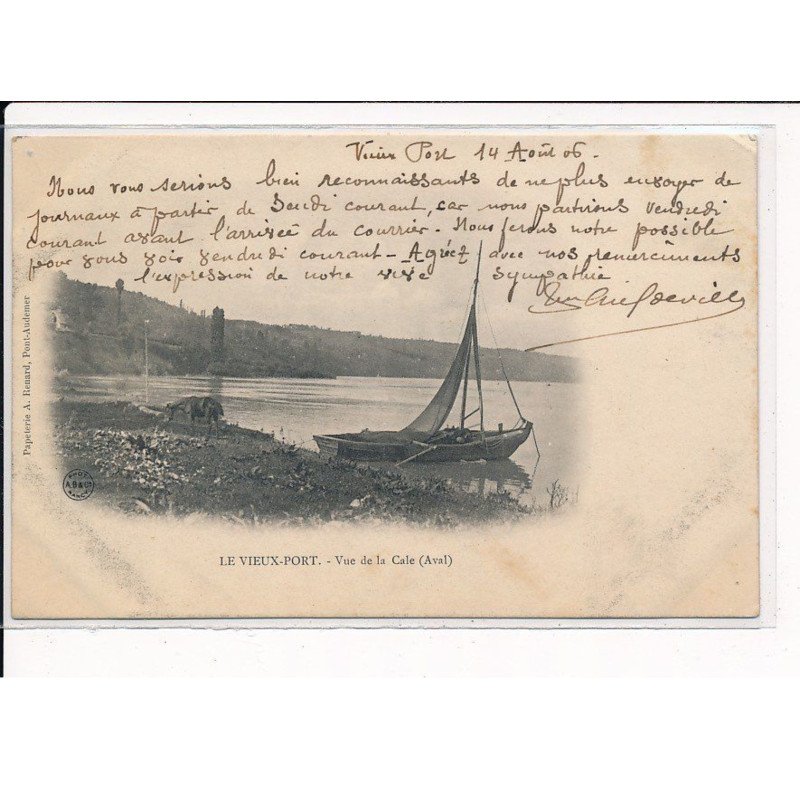 Vieux Port 14 Août 06.
Nous vous serions bien reconnaissants de ne plus envoyer de
journaux à partir de Jeudi courant, car nous partirons vendredi
courant avant l'arrivée du courrier - Nous ferons notre possible
pour vous voir vendredi courant - Agréez avec nos remerciments
l'expression de notre vive sympathie
Papeterie A. Renard, Pont-Audemer
A.B & Cie
LE VIEUX-PORT. - Vue de la Cale (Aval)